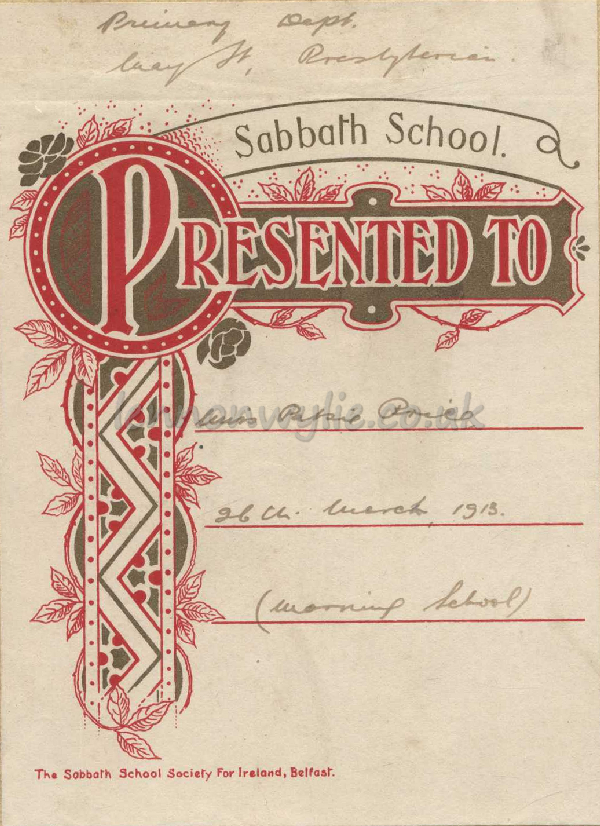 Primary Dept.
May St, Presbyterian.
Sabbath School.
PRESENTED TO
lennonwylie.co.uk
Miss Price
26th. March, 1913.
(Morning School)
The Sabbath School Society For Ireland, Belfast.